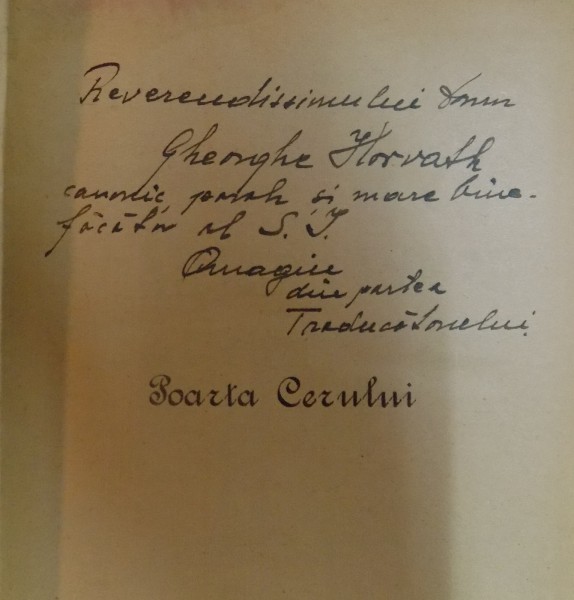 Reverendissimului domn
Gheorghe Horvath
canonic, paroh și mare bine-
făcător al S. J.
Omagiu
din partea
Traducătorului.
Poarta Cerului